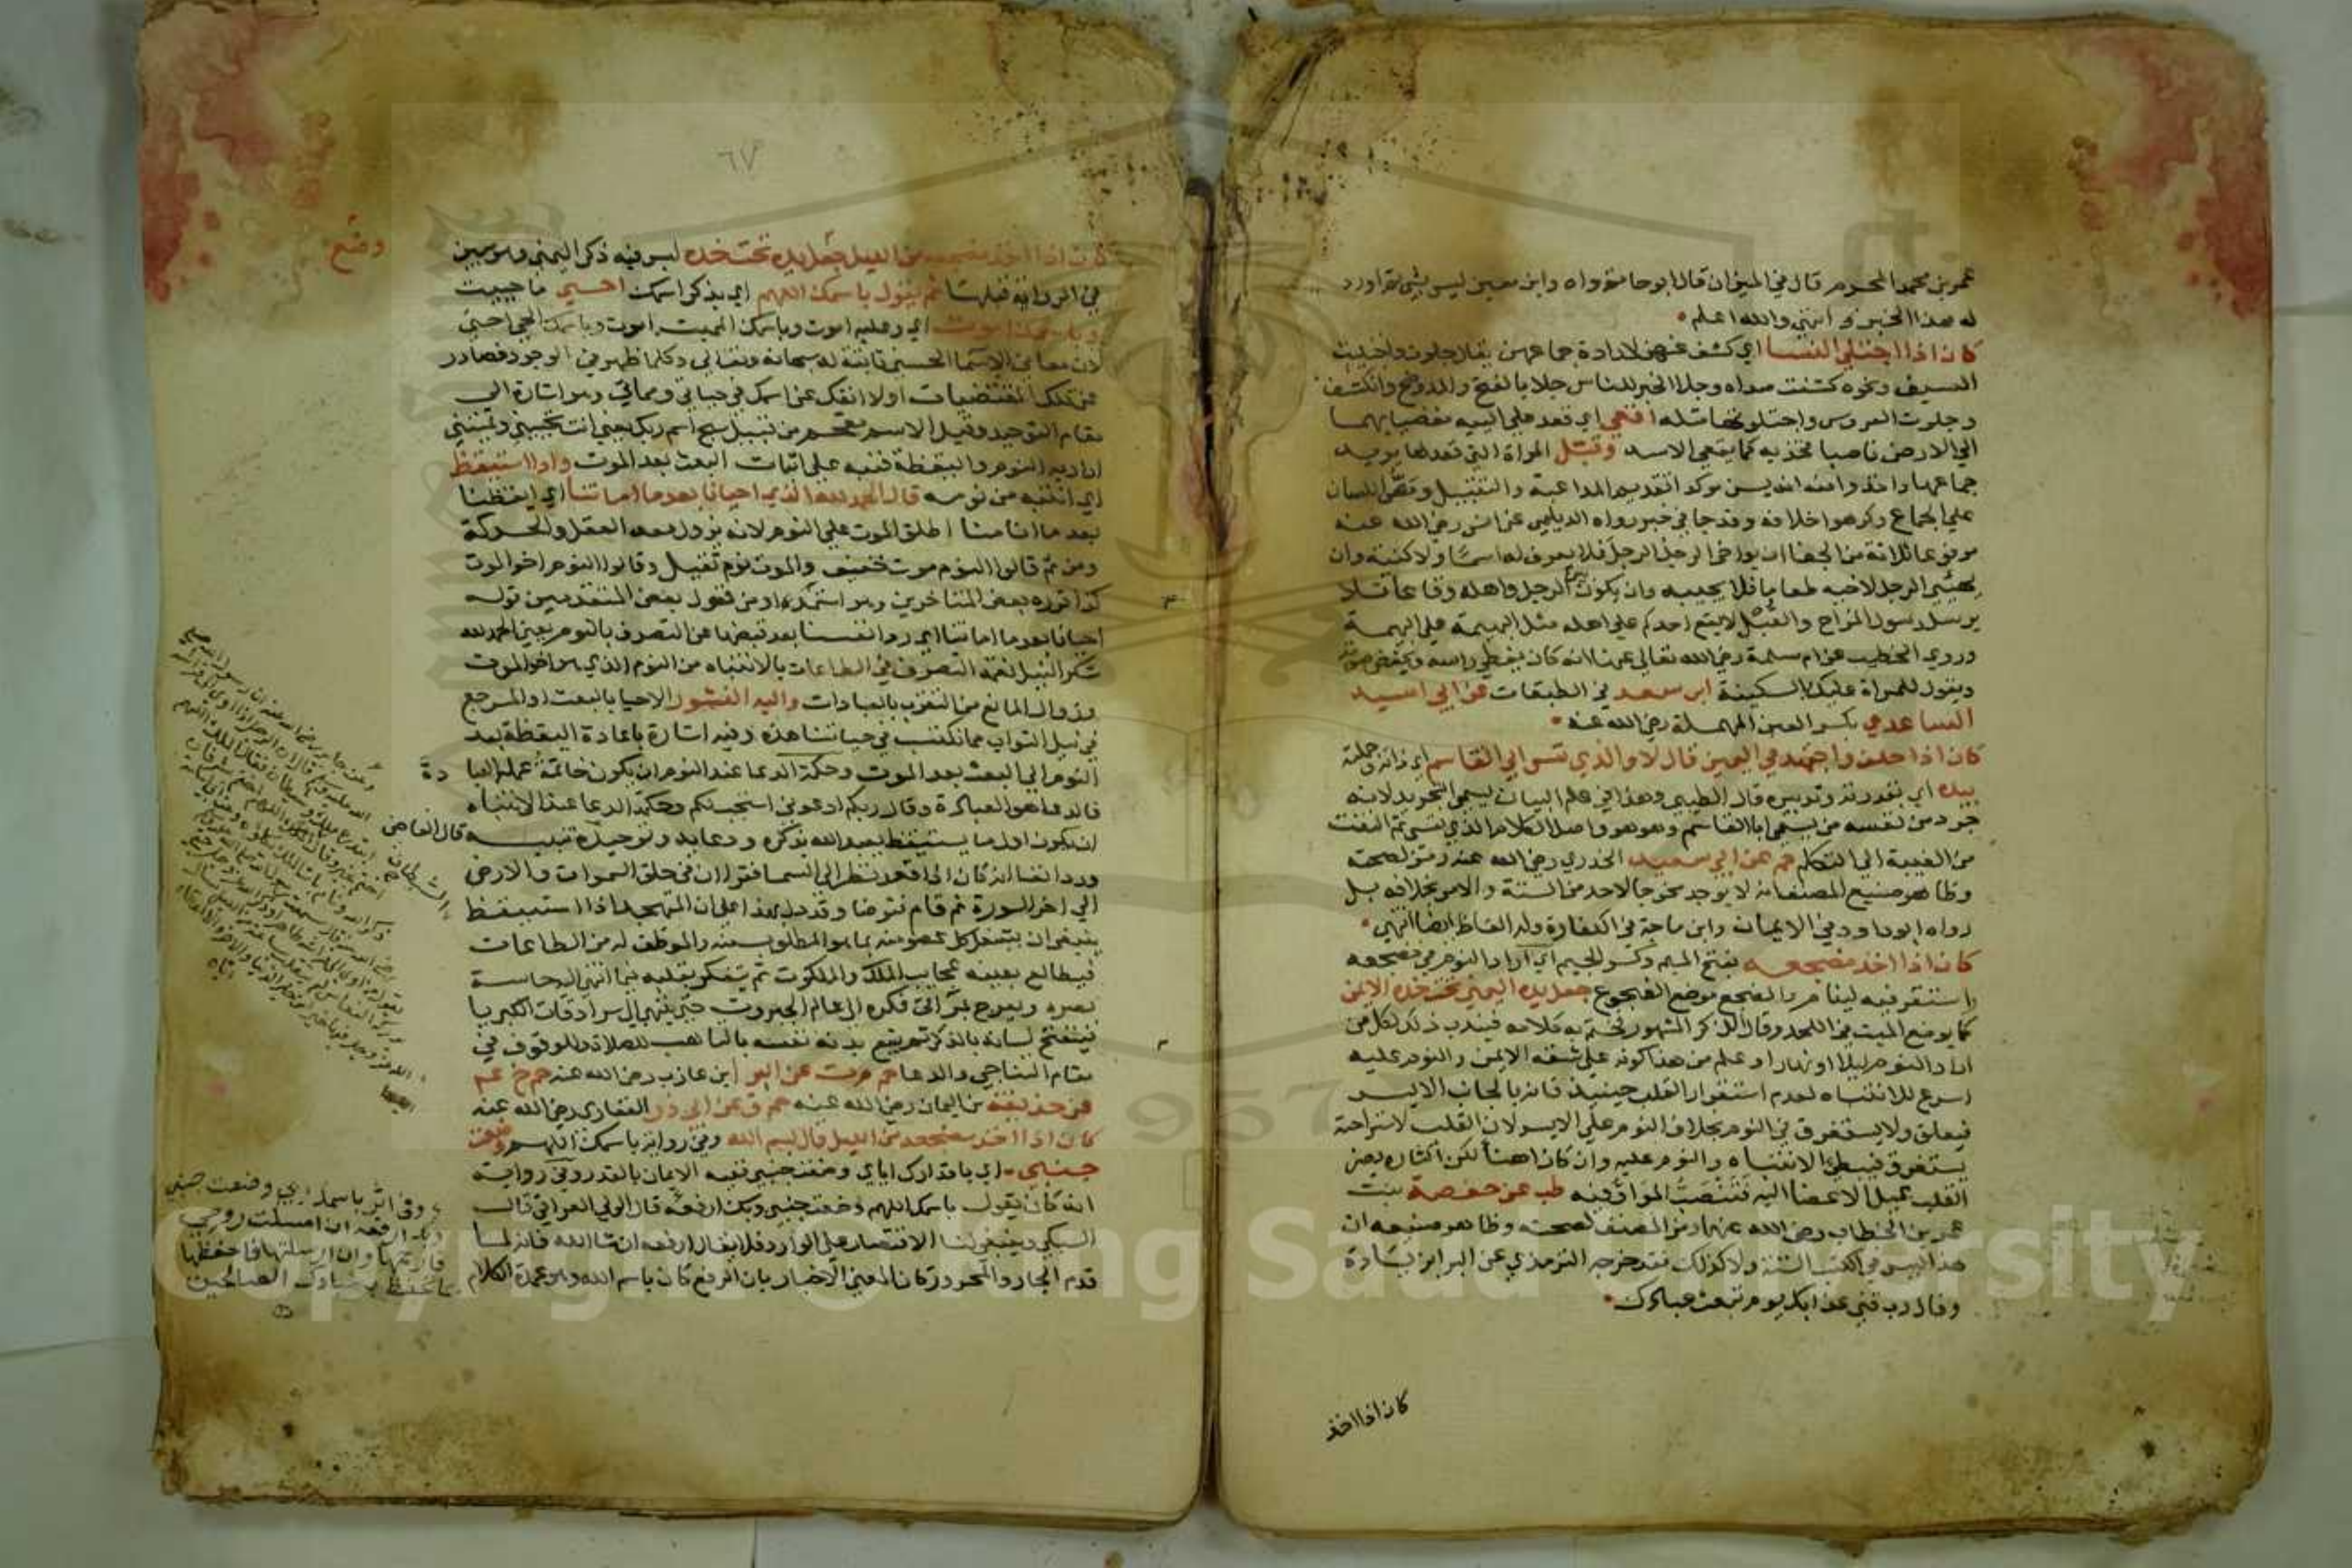 عمر بن محمد المحرم قال في الميزان قال ابو حاتم رواه وابن معين ليس بشي ثم اورد
له هذا الخبر انتهي والله اعلم
كان اذا اجتلي النسا اي كشف عنهن لارادة جماعهن يقال جلوت واجليت
السيف ونحوه كشفت صداه وجلا الخبر للناس جلا بالفتح والمد وضح وانكشف
وجلوت العروس واجتلوتها مثله اقعي اي قعد علي اليتيه مفضيا بهما
الي الارض ناصبا فخذيه كما يقعي الاسد وقبل المراة التي قعد لها يريد
جماعها واخذوا منه انه يسن موكدا تقديم المداعبة والتقبيل ومص اللسان
علي الجماع وكرهوا خلافه وقد جا في خبر رواه الديلمي عن انس رضي الله عنه
مرفوعا ثلاثة من الجفا ان يواخي الرجل الرجل فلا يعرف له اسما ولا كنية وان
يهيئ الرجل لاخيه طعاما فلا يجيبه وان يكون بين الرجل واهله وقاع من غير ان
يرسل رسول المزاح والقبل لا يقع احدكم علي اهله مثل البهيمة علي البهيمة
وروي الخطيب عن ام سلمة رضي الله تعالي عنها انه كان يغطي راسه ويخفض صوته
ويقول للمراة عليك بالسكينة ابن سعد في الطبقات عن ابي اسيد
الساعدي بكسر العين المهملة رضي الله عنه
كان اذا حلف واجتهد في اليمين قال لا والذي نفس ابي القاسم اي ذاته وجملته
بيده اي بقدرته وتدبيره قال الطيبي وهذا في علم البيان يسمي التجريد لانه
جرد من نفسه من يسمي ابا القاسم وهو هو واصل الكلام الذي نفسي ثم التفت
من الغيبة الي التكلم حم عن ابي سعيد الخدري رضي الله عنه رمز لصحته
وظاهر صنيع المصنف انه لا يوجد مخرجا لاحد من الستة والامر بخلافه بل
رواه ابو داود في الايمان وابن ماجة في الكفارة وله الفاظ ايضا انتهي
كان اذا اخذ مضجعه بفتح الميم وكسر الجيم اي اراد النوم في مضجعه
واستقر فيه لينام والمضجع موضع الضجوع جعل يده اليمني تحت خده الايمن
كما يوضع الميت في اللحد وقال الذكر المشهور فختم به كلامه فيندب ذلك لكل من
اراد النوم ليلا او نهارا وعلم من هذا كونه علي شقه الايمن والنوم عليه
اسرع للانتباه لعدم استقرار القلب حينئذ فانه بالجانب الايسر
فيعلق ولا يستغرق في النوم بخلاف النوم علي الايسر لان القلب لاستراحته
يستغرق فيبطئ الانتباه والنوم عليه وان كان اهنا لكن اكثاره يضر
القلب بميل الاعضا اليه فتنصب المواد فيه طب عن حفصة بنت
عمر بن الخطاب رضي الله عنها رمز المصنف لصحته وظاهر صنيعه ان
هذا ليس في الكتب الستة ولا كذلك فقد خرجه الترمذي عن البرا بزيادة
وقال رب قني عذابك يوم تبعث عبادك
كان اذا اخذ
٦٧
كان اذا اخذ مضجعه من الليل جعل يده تحت خده ليس فيه ذكر اليمني وهو مبين
وضع
في الرواية قبلها ثم يقول باسمك اللهم اي بذكر اسمك احيي ما حييت
وباسمك اموت اي وعليه اموت وباسمك المميت اموت وباسمك المحيي احيي
لان معاني الاسما الحسني ثابتة له سبحانه وتعالي وكلما ظهر في الوجود فصادر
عن تلك المقتضيات او لا انفك عن اسمك في حياتي ومماتي وهو اشارة الي
مقام التوحيد وقيل الاسم مقحم من قبيل سبح اسم ربك يعني انت تحييني وتميتني
اراد به النوم واليقظة فنبه علي اثبات البعث بعد الموت واذا استيقظ
اي انتبه من نومه قال الحمد لله الذي احيانا بعد ما اماتنا اي ايقظنا
بعد ما انامنا اطلق الموت علي النوم لانه يزول معه العقل والحركة
ومن ثم قالوا النوم موت خفيف والموت نوم ثقيل وقالوا النوم اخو الموت
كذا قرره بعض المتاخرين وهو استمداد من قول بعض المتقدمين قوله
احيانا بعد ما اماتنا اي رد انفسنا بعد قبضها عن التصرف بالنوم يعني الحمد لله
شكرا لنيل نعمة التصرف في الطاعات بالانتباه من النوم الذي هو اخو الموت
وزوال المانع من التقرب بالعبادات واليه النشور الاحيا بالبعث او المرجع
في نيل الثواب مما نكتسب في حياتنا هذه وفيه اشارة باعادة اليقظة بعد
النوم الي البعث بعد الموت وحكمة الدعا عند النوم ان يكون خاتمة عمله العبا
دة
فالدعا هو العبادة وقال ربكم ادعوني استجب لكم وحكمة الدعا عند الانتباه
ان يكون اول ما يستيقظ يعبد الله بذكره ودعايه وتوحيده تنبيه قال القاضي
ورد ايضا انه كان اذا قعد نظر الي السما فقرا ان في خلق السموات والارض
الي اخر السورة ثم قام فتوضا وقد دل هذا علي ان المتهجد اذا استيقظ
ينبغي ان يشغل كل عضو منه بما هو المطلوب منه والموظف له من الطاعات
فيطالع بعينه عجايب الملك والملكوت ثم يتفكر بقلبه فيما انتهي اليه حاسة
بصره ويعرج مراقي فكره الي عالم الجبروت حتي ينتهي الي سرادقات الكبريا
فيفتح لسانه بالذكر ثم يتبع بدنه نفسه بالتاهب للصلاة والوقوف في
مقام التناجي والدعا حم م ت عن البرا بن عازب رضي الله عنه حم خ عم
عن حذيفة بن اليمان رضي الله عنه حم ق عن ابي ذر الغفاري رضي الله عنه
كان اذا اخذ مضجعه من الليل قال بسم الله وفي رواية باسمك اللهم وضعت
جنبي اي باقدارك اياي وضعت جنبي ففيه الايمان بالقدر وفي رواية
انه كان يقول باسمك اللهم وضعت جنبي وبك ارفعه قال الولي العراقي قال
السبكي وينبغي لنا الاقتصار علي الوارد فلا يقال ارفعه ان شا الله فانه لما
قدم الجار والمجرور كان المعني الاخبار بان الرفع كان باسم الله وهو عمدة الكلام
وضعت جنبي
وبك ارفعه ان امسكت روحي
فارحمها وان ارسلتها فاحفظها
بما تحفظ به عبادك الصالحين
Copyright © King Saud University
1957